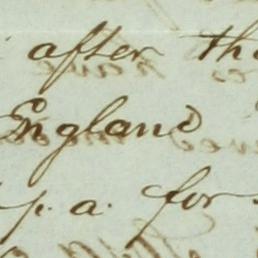 after the
England
p. a. for